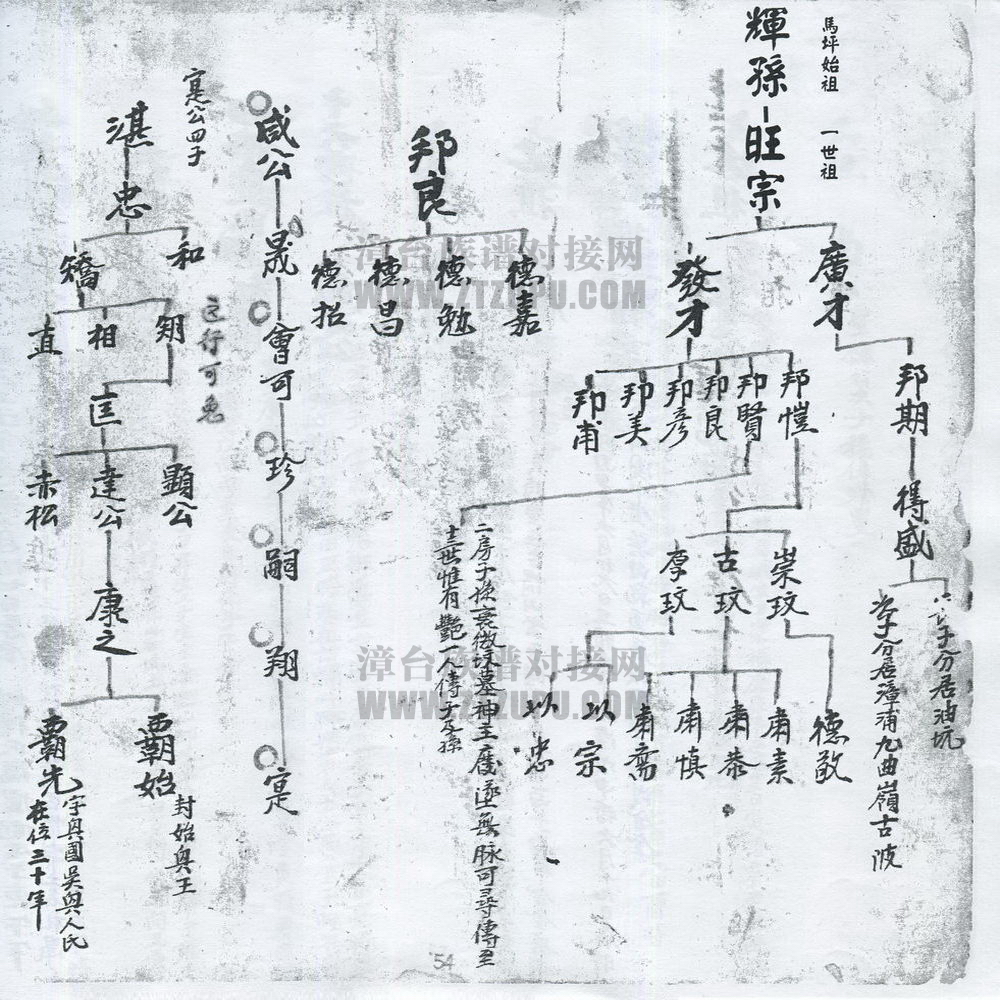 馬坪始祖 一世祖
輝孫 旺宗
廣才
發才
邦期
得盛
子分居油坑
次子分居漳浦九曲嶺古波
邦愷
邦賢
邦良
邦彥
邦美
邦甫
崇玟
古玟
厚玟
德敬
肅素
肅恭
肅慎
肅齋
以宗
以忠
二房子孫衰微坟墓神主廢墜無脉可尋傳至
十三世惟有艷一人傳子及孫
邦良
德嘉
德勉
德昌
德招
咸公
晟
會可
珍
嗣
翔
寔
寔公四子
這行可免
湛
忠
和
矯
翔
相
直
匡
顯公
達公
赤松
康之
霸始
封始興王
霸先
字興國吳興人氏
在位三十年
漳台族谱对接网
WWW.ZTZUPU.COM
漳台族谱对接网
WWW.ZTZUPU.COM
54